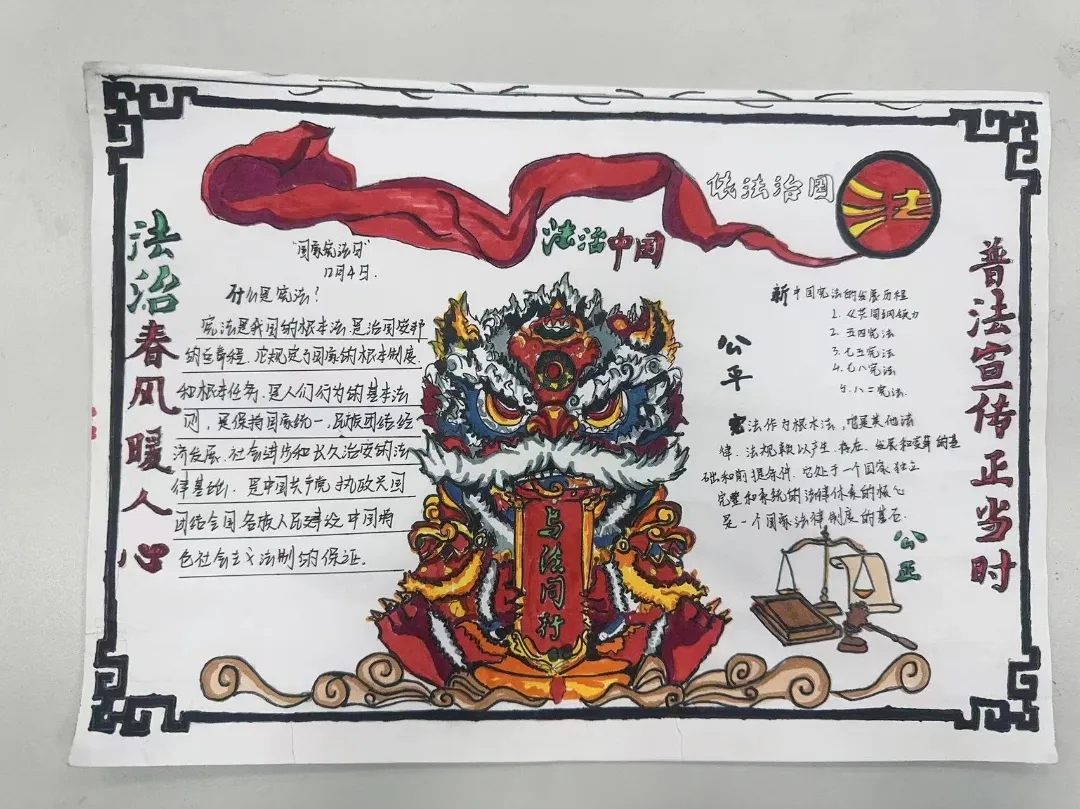 依法治国
法
法治中国
法治春风暖人心
普法宣传正当时
"国家宪法日"
12月4日.
什么是宪法?
宪法是我国的根本法.是治国安邦
的总章程.它规定了国家的根本制度
和根本任务.是人们行为的基本法
则,是保持国家统一、民族团结、经
济发展、社会进步和长久治安的法
律基础.是中国共产党执政兴国
团结全国各族人民建设中国特
色社会主义法制的保证.
公平
与法同行
新中国宪法的发展历程
1.《共同纲领》
2.五四宪法
3.七五宪法
4.七八宪法
5.八二宪法.
宪法作为根本法,它是其他法
律、法规赖以产生、存在、发展和变更的基
础和前提条件.它处于一个国家独立
完整和系统的法律体系的核心
是一个国家法律制度的基石.
公正